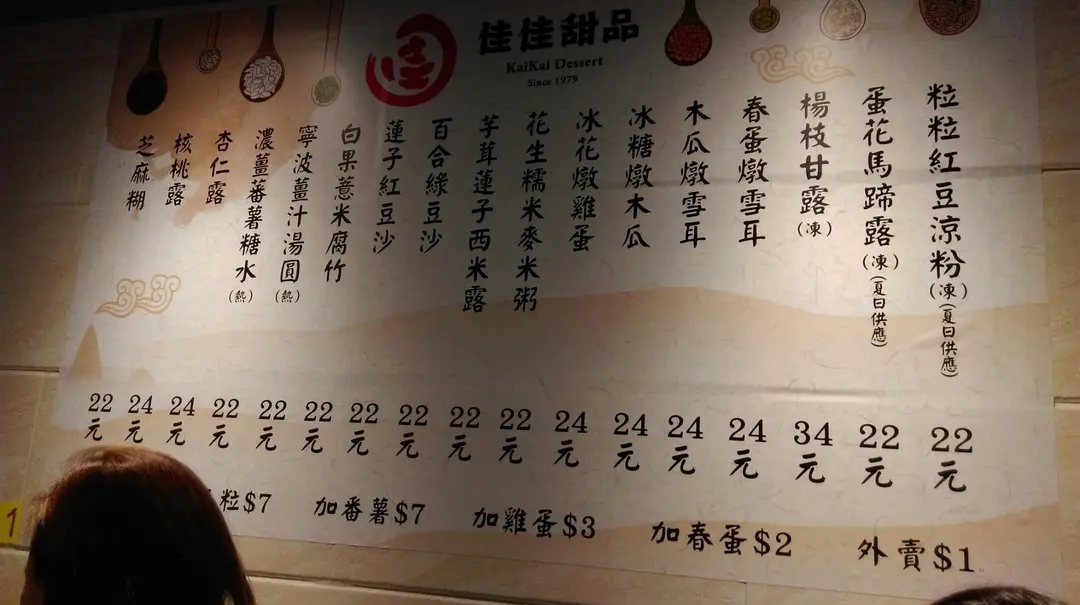 佳佳甜品
KaiKai Dessert
Since 1979
粒粒紅豆涼粉(凍)(夏日供應)
蛋花馬蹄露(凍)(夏日供應)
楊枝甘露(凍)
春蛋燉雪耳
木瓜燉雪耳
冰糖燉木瓜
冰花燉雞蛋
花生糯米麥米粥
芋茸蓮子西米露
百合綠豆沙
蓮子紅豆沙
白果薏米腐竹
寧波薑汁湯圓(熱)
濃薑蕃薯糖水(熱)
杏仁露
核桃露
芝麻糊
22元
22元
34元
24元
24元
24元
24元
22元
22元
22元
22元
22元
22元
22元
24元
24元
22元
粒$7
加番薯$7
加雞蛋$3
加春蛋$2
外賣$1
1